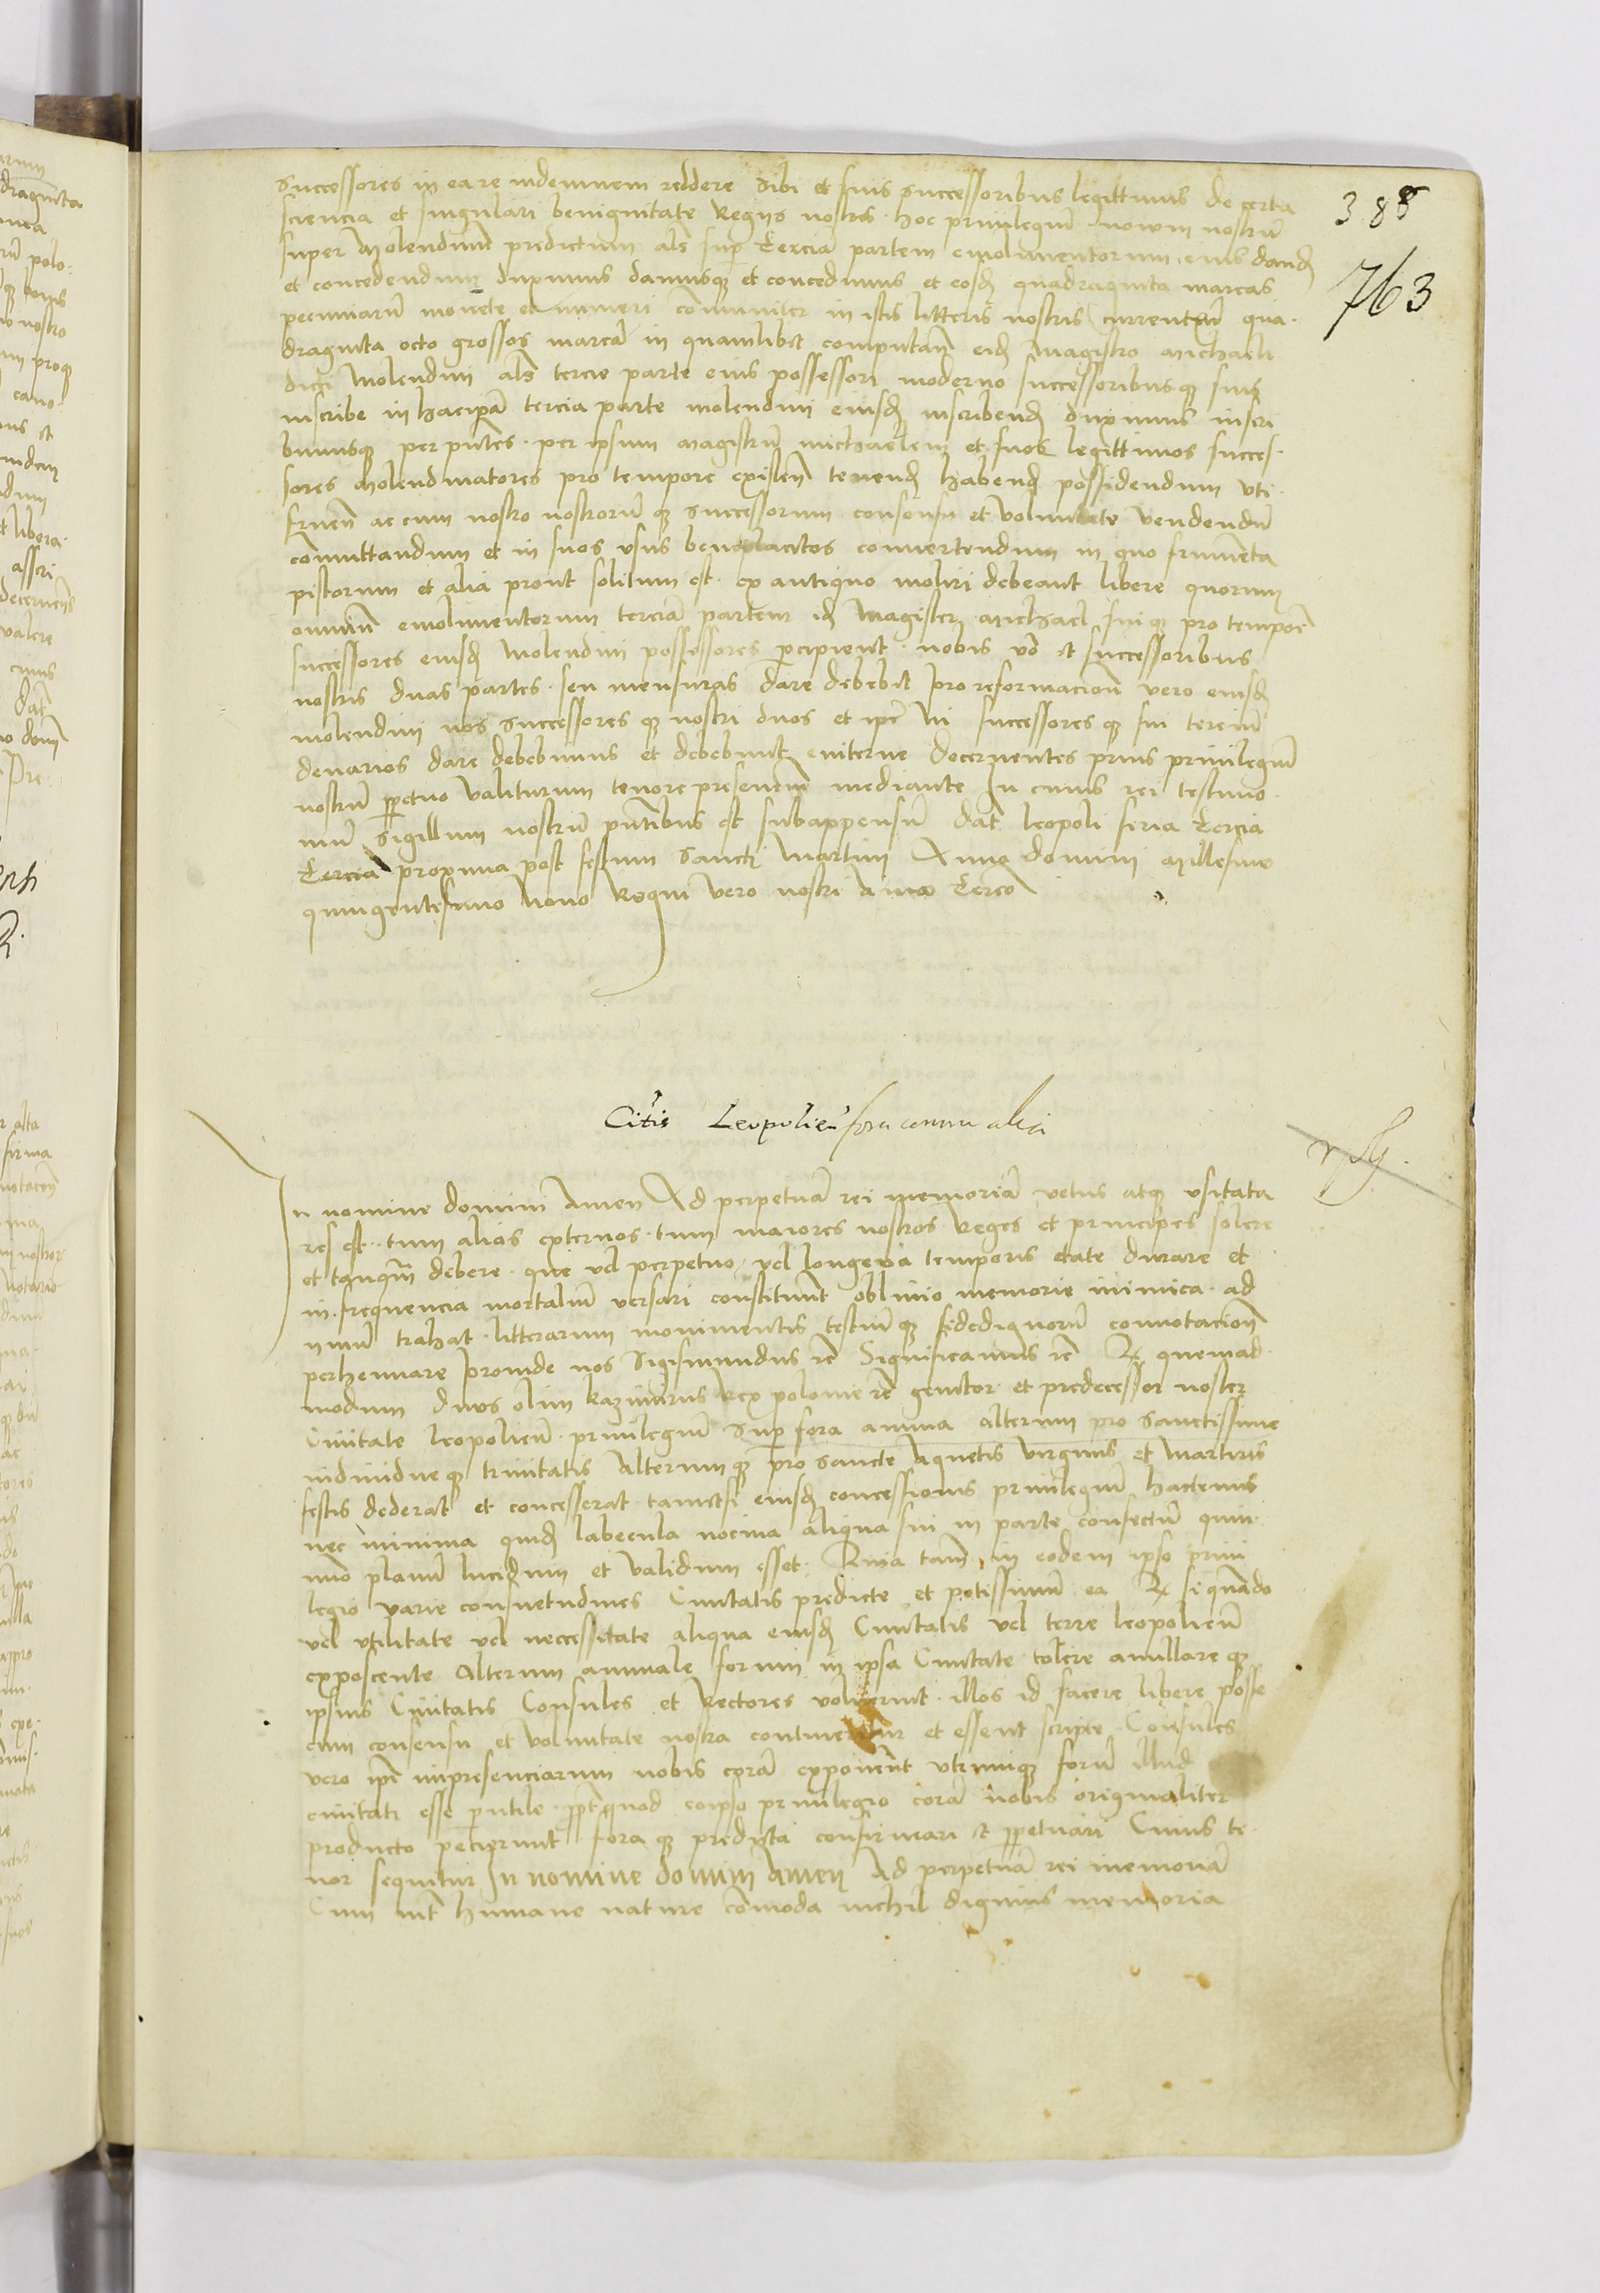 successores in ea re indemnem reddere sibi et suis successoribus legittimis de certa
sciencia et singulari benignitate Regiis nostris hoc privilegiu nowm nostru
super Molendinu predictum als sup terciã partem emolimentorum eius dand
et concedendum duximus damusq et concedimus et eosd quadraginta marcas
pecuniarũ monete et numeri comuniter in istis litteris nostris currentiũ qua
draginta octo grossos marcã in quamlibet computan eid Magistro Michaeli
dicti Molendini als tercie parte eius possessori moderno successoribusq suis
inscribe in hac tercia parte molendini eiusd inscribend duximus inscri
bimusq per pntes per ipsum magistrũ michaelem et suos legittimos succes
sores Molendinatores pro tempore existen tenend habend possidendum uti
fruen ac cum nostro nostrorũ q successorum consensu et voluntate vendendũ
comuttandum et in suos usus beneplacitos convertendum in quo frumenta
pistorum et alia prout solitum est ex antiquo moliri debeant libere quorum
omniũ emolimentorum terciã partem id Magister Michael sui q pro tempore
successores eiusd Molendini possessores percipient nobis vo et successoribus
nostris duas partes seu mensuras dare debebit pro reformacione vero eiusd
molendini nos successores q nostri duos et ipse successores q sui terciũ
denarios dare debebimus et debebunt eviterne decernentes prius privilegiũ
nostrũ ppetuo valiturum tenore presenciũ mediante In cuius rei testimo
niũ sigillum nostrũ pntibus est subappensũ Dat leopoli feria tercia
tercia proxima post festum sancti Martini Anno domini Millesimo
quingentesimo Nono Regni vero nostri Anno tercio
388
763
Citis Leopolien fora annualia
In nomine domini Amen Ad perpetuã rei memoriã vetus atq usitata
res est tum alios externos tum maiores nostros Reges et principes solere
et tanqm debere que vel perpetuo vel longeva temporis etate durare et
in frequencia mortaliũ versari constituunt oblivio memorie inimica ad
nimũ trahat litterarum monimentis testiũ q fidedignorũ connotacion
perhennare proinde nos Sigismundus rc Significamus rc Q quemad
modum dnos olim kazimirus Rex polonie rc genitor et predecessor noster
Civitate leopolien privilegiũ sup fora annua alterum pro sanctissime
individueq trinitatis alterumq pro sancte Agnetis virginis et martiris
festis dederat et concesserat tametsi eiusd concessionis privilegiũ hactenus
nec minima quid labecula nociva aliqua sui in parte confectũ quin
nuo planũ lucidum et validum esset Quia tam in eodem ipso privi
legio varie consuetudines Civitatis predicte et potissimũ ea Q siquando
vel utilitate vel neccessitate aliqua eiusd Civitatis vel terre leopolien
exposcente alterum annuale forum in ipsa Civitate tolere anullare q
ipsius Civitatis Consules et Rectores voluerint illos id facere libere posse
cum consensu et voluntate nostra continerentur et essent scripte Consules
vero ipi inpresenciarum nobis corã exponerent utrumq forũ illud
civitati esse putile ppt quod eoipso privilegio corã nobis originaliter
producto pecierunt fora q predicta confirmari et ppetuari Cuius te
nor sequitur In nomine domini Amen Ad perpetuã rei memoriã
Cum int humane nature comoda nichil dignius memoria